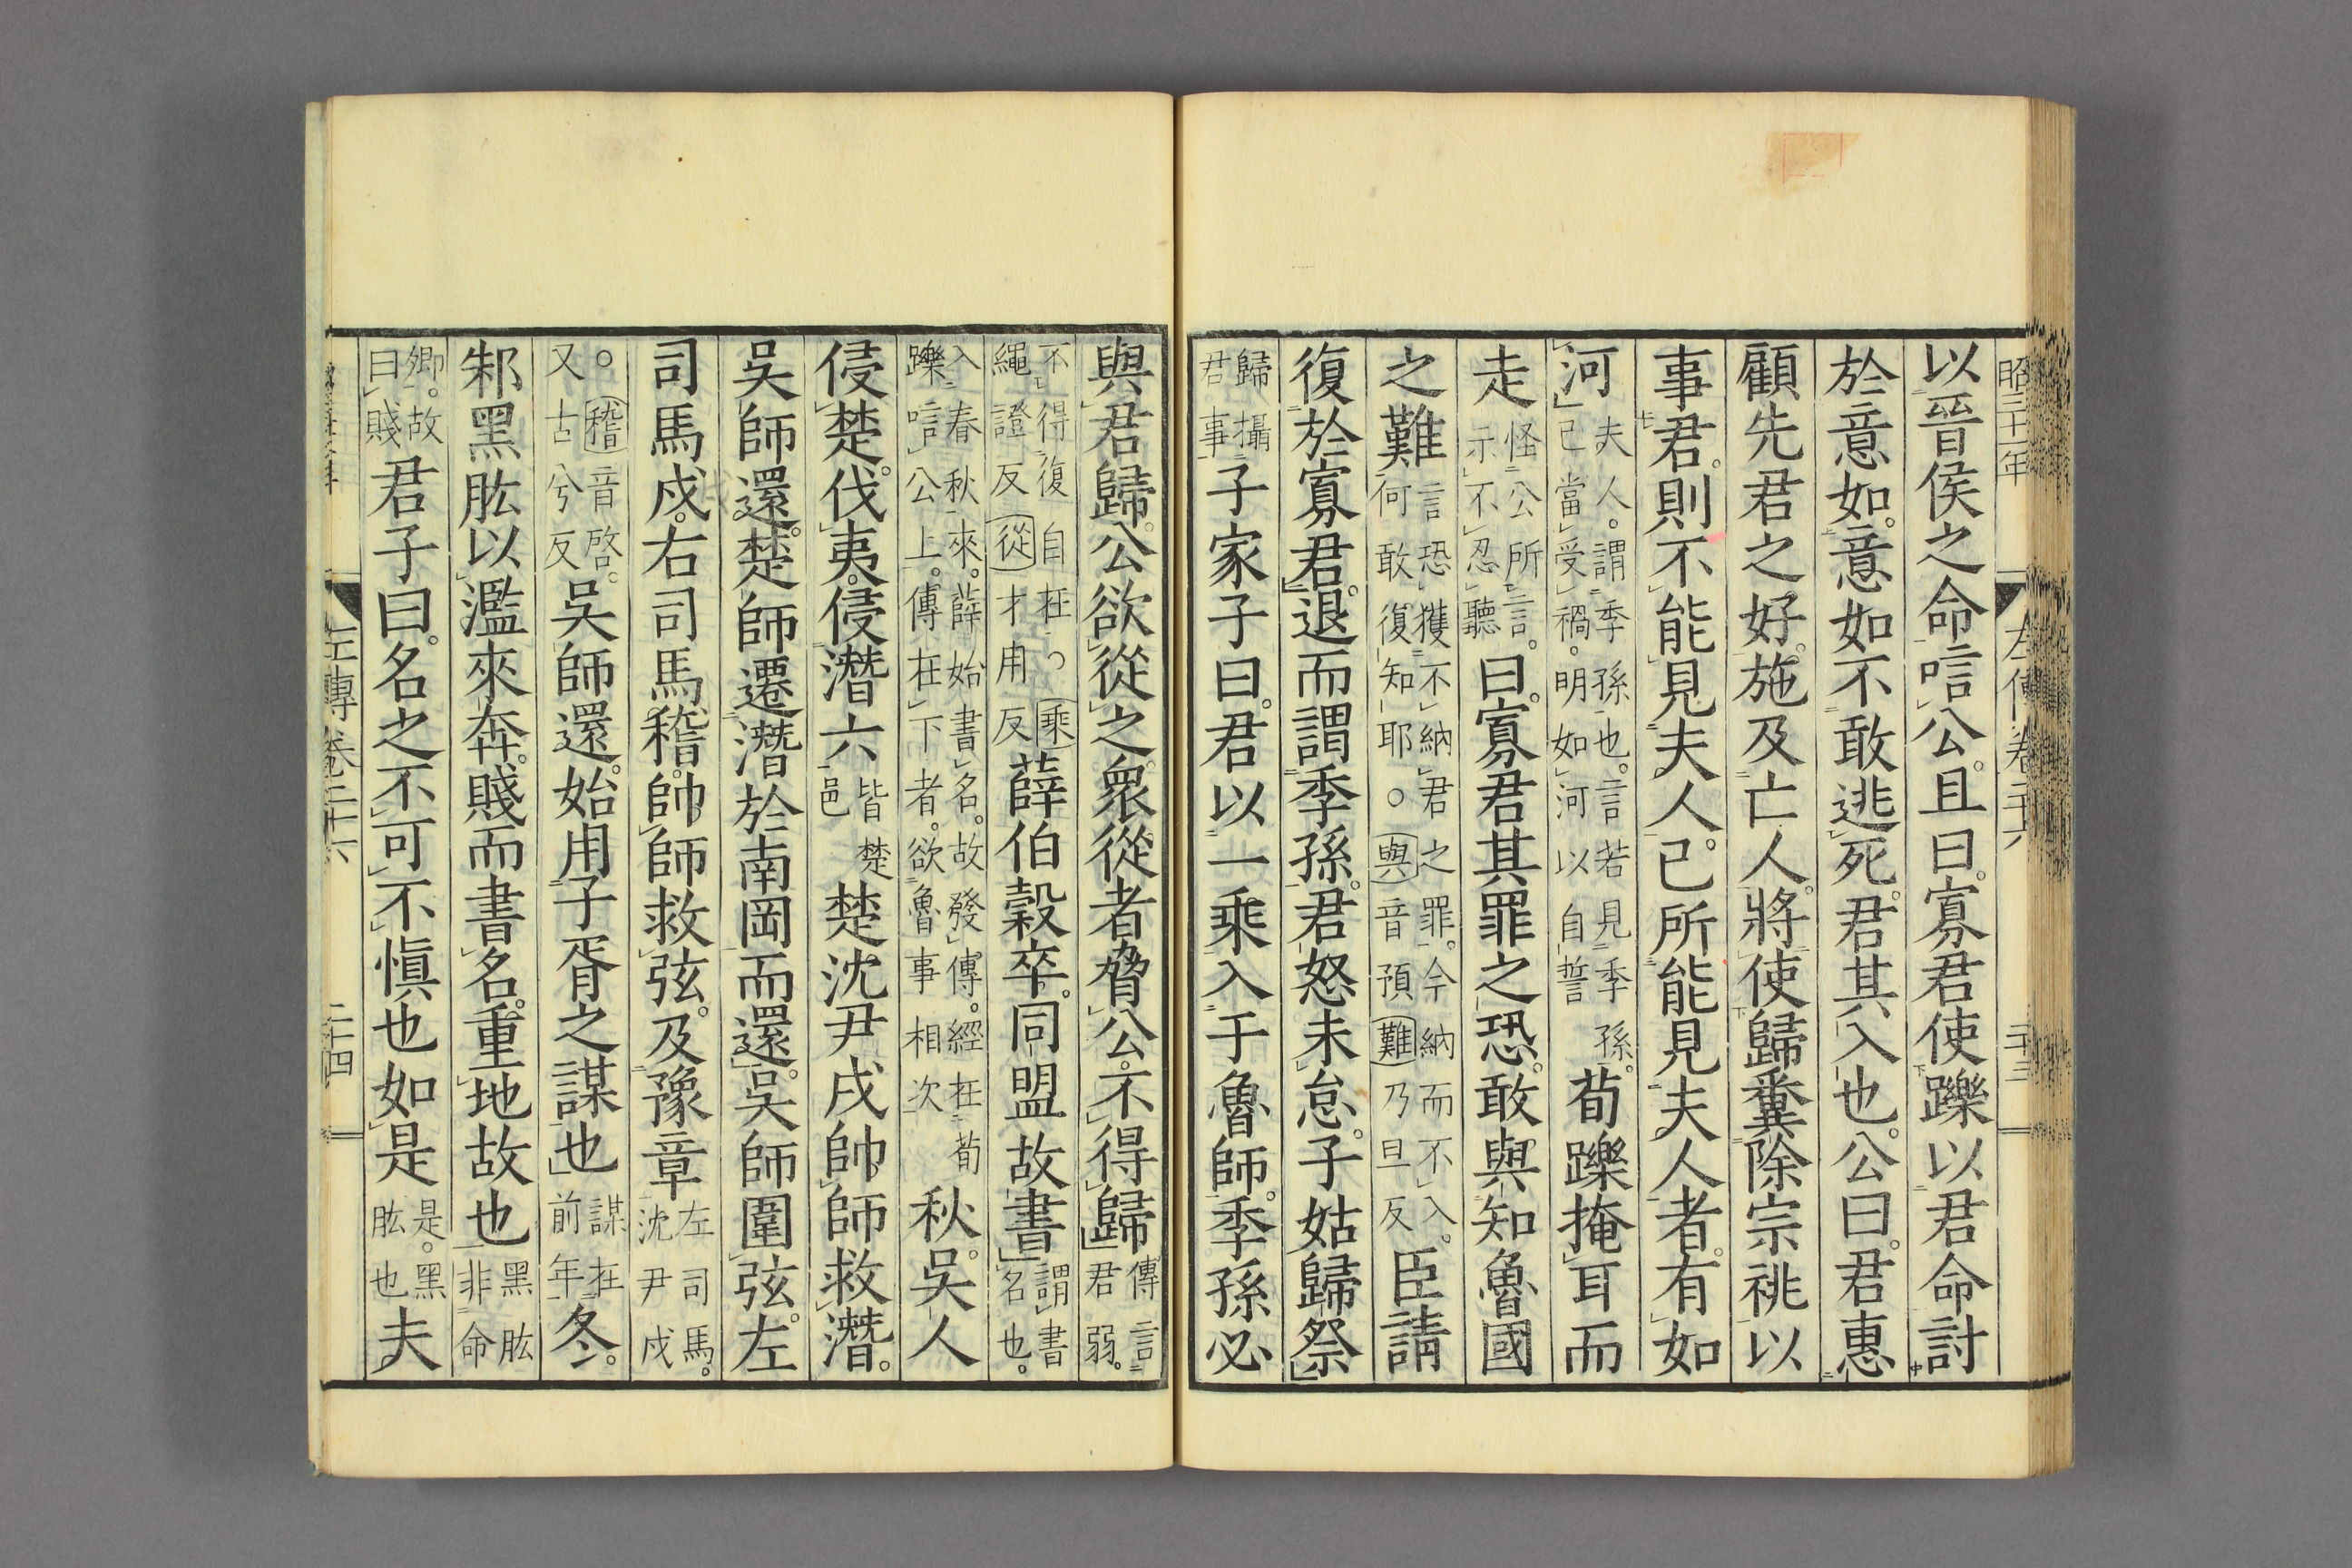 昭三十一年 左傳卷二十六 二十三
以晉侯之命唁公。且曰。寡君使躒以君命討
於意如。意如不敢逃死。君其入也。公曰。君惠
顧先君之好。施及亡人。將使歸糞除宗祧以
事君。則不能見夫人。己所能見夫人者。有如
河夫人。謂季孫也。言若見季孫。己當受禍。明如河以自誓荀躒掩耳而
走怪公所言。示不忍聽曰。寡君其罪之恐。敢與知魯國
之難言恐獲不納君之罪。今納而不入。何敢復知耶○與音預難乃旦反臣請
復於寡君。退而謂季孫。君怒未怠。子姑歸祭
歸攝君事子家子曰。君以一乘入于魯師。季孫必
與君歸。公欲從之。眾從者脅公。不得歸傳言君弱。
不得復自在○乘繩證反從才用反薛伯穀卒。同盟故書謂書名也。
入春秋來。薛始書名。故發傳。經在荀躒唁公上。傳在下者。欲魯事相次秋。吳人
侵楚。伐夷。侵潛六皆楚邑楚沈尹戌帥師救潛。
吳師還。楚師遷潛於南岡而還。吳師圍弦。左
司馬戌。右司馬稽。帥師救弦。及豫章左司馬。沈尹戌
○稽音啓。又古兮反吳師還。始用子胥之謀也謀在前年冬。
邾黑肱以濫來奔。賤而書名。重地故也黑肱非命
卿。故曰賤君子曰。名之不可不愼也如是是。黑肱也夫
左傳卷二十六 二十四